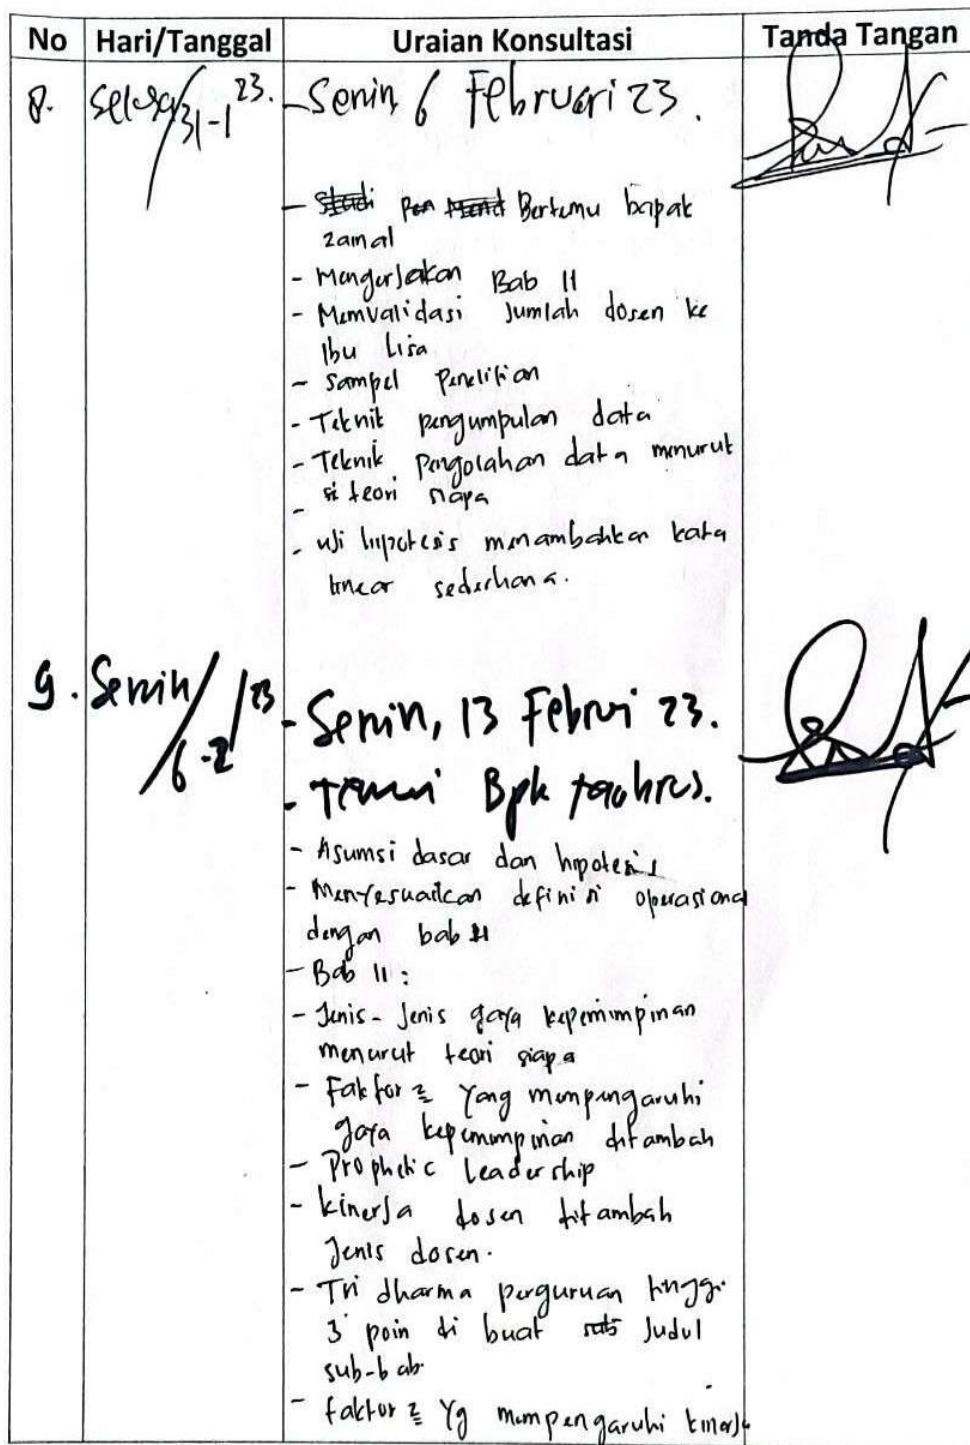 No Hari/Tanggal Uraian Konsultasi Tanda Tangan
8. Selasa/31-1 23. - Senin 6 Februari 23.
- Bertemu bapak
zamal
- Mengerjakan Bab II
- Memvalidasi Jumlah dosen ke
Ibu Lisa
- Sampel Penelitian
- Teknik pengumpulan data
- Teknik Pengolahan data menurut
- teori siapa
- Uji hipotesis menambahkan kata
linear sederhana.
9. Senin/6-2/23 - Senin, 13 Februi 23.
- Temui Bpk
- Asumsi dasar dan hipotesis
- Menyesuaikan definisi operasional
dengan bab II
- Bab II :
- Jenis-Jenis gaya kepemimpinan
menurut teori siapa
- Faktor2 Yang mempengaruhi
gaya kepemimpinan ditambah
- Prophetic Leadership
- Kinerja dosen ditambah
Jenis dosen.
- Tri dharma perguruan tinggi
3 poin di buat Judul
sub-bab
- faktor2 Yg mempengaruhi kinerja